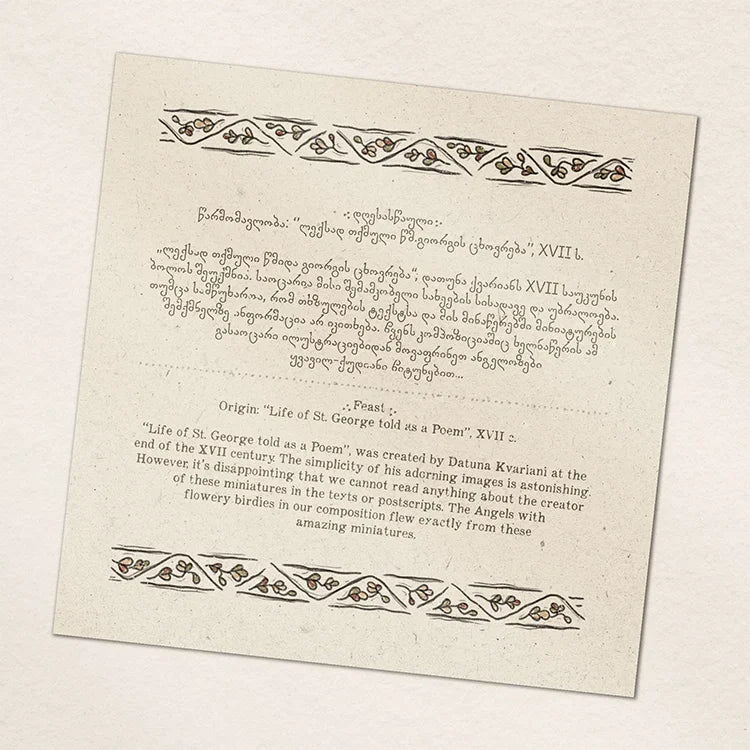 ·:დღესასწაული:·
წარმომავლობა: "ლექსად თქმული წმ.გიორგის ცხოვრება", XVII ს.
„ლექსად თქმული წმიდა გიორგის ცხოვრება“; დათუნა ქვარიანს XVII საუკუნის
ბოლოს შეუქმნია. საოცარია მისი შემამკობელი სახეების სისადავე და უბრალოება.
თუმცა სამწუხაროა, რომ თხზულების ტექსტსა და მის მინაწერებში მინიატურების
შემქმნელზე ინფორმაცია არ იკითხება. ჩვენს კომპოზიციაშიც ხელნაწერის ამ
გასაოცარი ილუსტრაციებიდან მოვაფრინეთ ანგელოზები
ყვავილ-ქუდიანი ჩიტუნებით...
·:Feast:·
Origin: "Life of St. George told as a Poem", XVII c.
"Life of St. George told as a Poem", was created by Datuna Kvariani at the
end of the XVII century. The simplicity of his adorning images is astonishing.
However, it's disappointing that we cannot read anything about the creator
of these miniatures in the texts or postscripts. The Angels with
flowery birdies in our composition flew exactly from these
amazing miniatures.